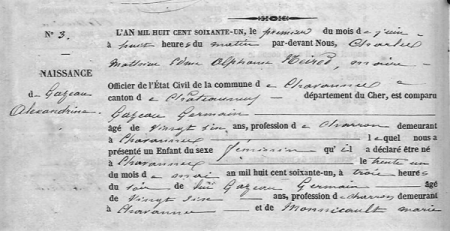 N° 3.
L'AN MIL HUIT CENT SOIXANTE-UN, le premier du mois de juin
à huit heures du matin par-devant Nous, Charles
Mathieu Alphonse maire
NAISSANCE
Officier de l'État Civil de la commune de Chavannes
canton de Châteauneuf département du Cher, est comparu
de Gazeau
Alexandrine
Gazeau Germain
âgé de vingt six ans, profession de charron demeurant
à Chavannes lequel nous a
présenté un Enfant du sexe féminin qu'il a déclaré être né
à Chavannes le trente un
du mois de mai an mil huit cent soixante-un, à trois heures
du soir de lui Gazeau Germain âgé
de vingt six ans, profession de charron demeurant
à Chavannes et de Monnicault marie